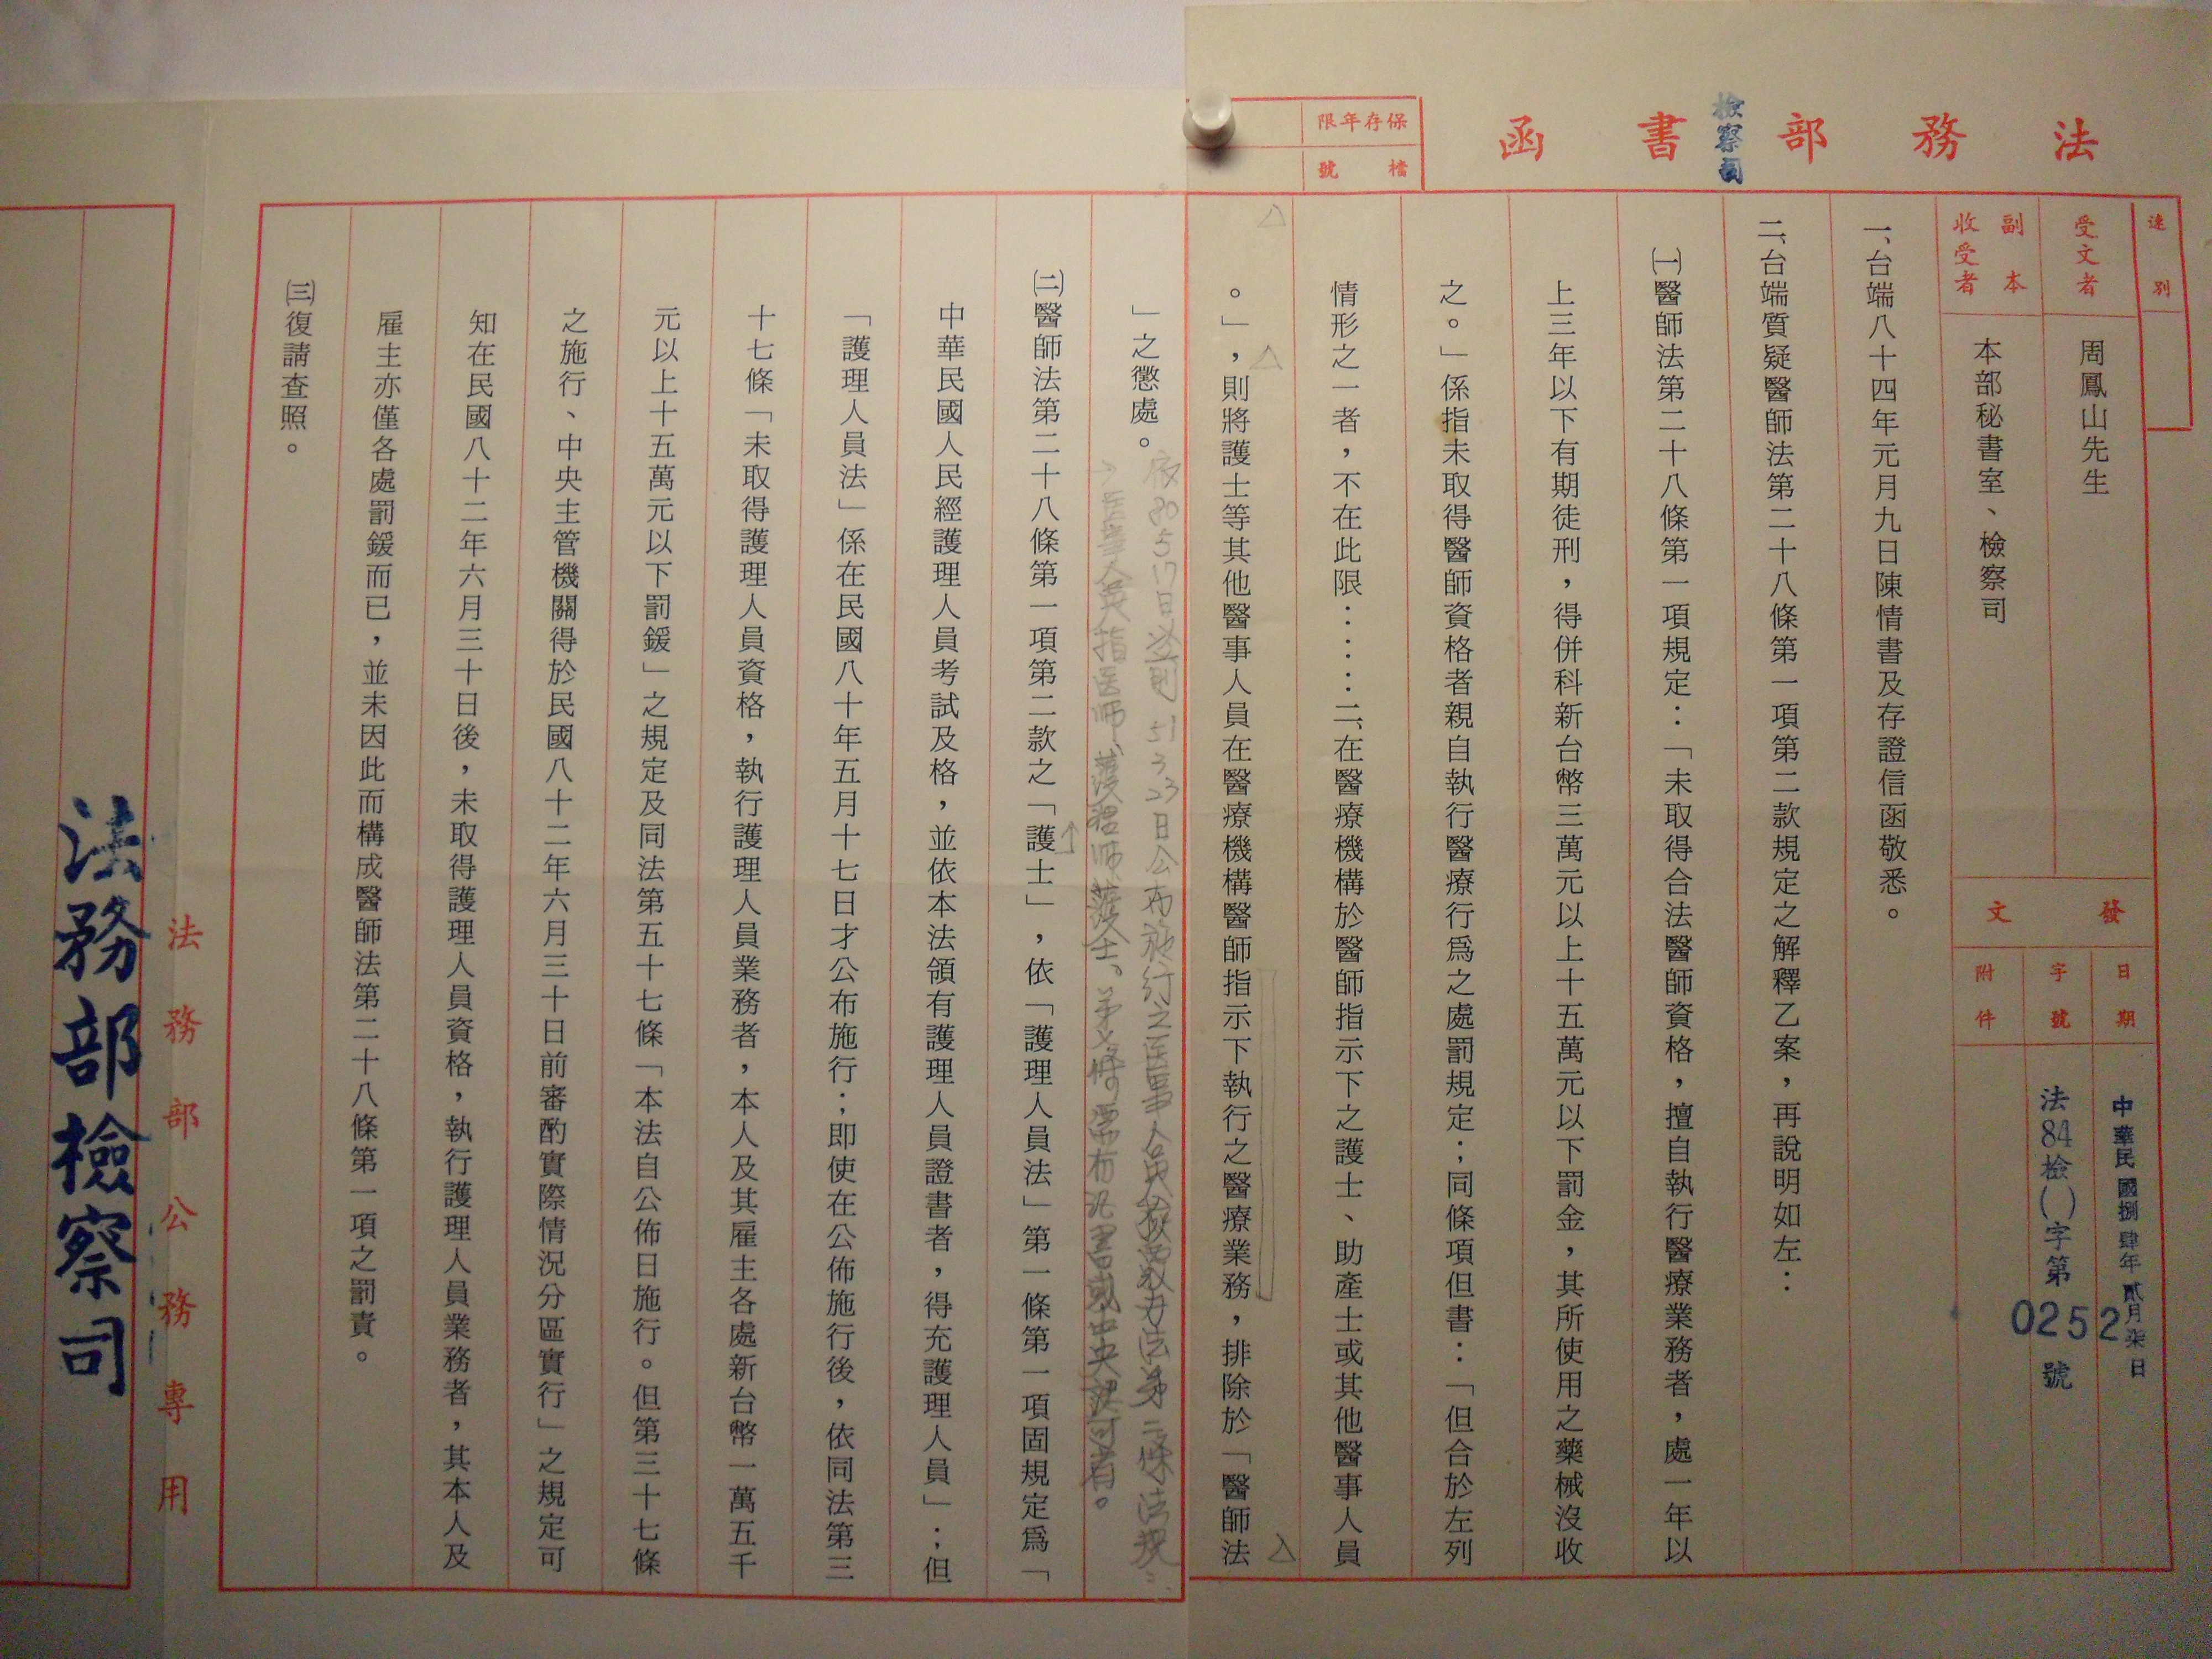 法務部書函
檢察司
保存年限
檔號
速別
受文者
周鳳山先生
副本收受者
本部秘書室、檢察司
發文
日期
中華民國捌肆年貳月柒日
字號
法84檢()字第0252號
附件
一、台端八十四年元月九日陳情書及存證信函敬悉。
二、台端質疑醫師法第二十八條第一項第二款規定之解釋乙案，再說明如左：
㈠醫師法第二十八條第一項規定：「未取得合法醫師資格，擅自執行醫療業務者，處一年以
上三年以下有期徒刑，得併科新台幣三萬元以上十五萬元以下罰金，其所使用之藥械沒收
之。」係指未取得醫師資格者親自執行醫療行爲之處罰規定；同條項但書：「但合於左列
情形之一者，不在此限：……二、在醫療機構於醫師指示下之護士、助產士或其他醫事人員
。」，則將護士等其他醫事人員在醫療機構醫師指示下執行之醫療業務，排除於「醫師法
」之懲處。
㈡醫師法第二十八條第一項第二款之「護士」，依「護理人員法」第一條第一項固規定爲「
中華民國人民經護理人員考試及格，並依本法領有護理人員證書者，得充護理人員」；但
「護理人員法」係在民國八十年五月十七日才公布施行；即使在公佈施行後，依同法第三
十七條「未取得護理人員資格，執行護理人員業務者，本人及其雇主各處新台幣一萬五千
元以上十五萬元以下罰鍰」之規定及同法第五十七條「本法自公佈日施行。但第三十七條
之施行、中央主管機關得於民國八十二年六月三十日前審酌實際情況分區實行」之規定可
知在民國八十二年六月三十日後，未取得護理人員資格，執行護理人員業務者，其本人及
雇主亦僅各處罰鍰而已，並未因此而構成醫師法第二十八條第一項之罰責。
㈢復請查照。
法務部公務專用
法務部檢察司